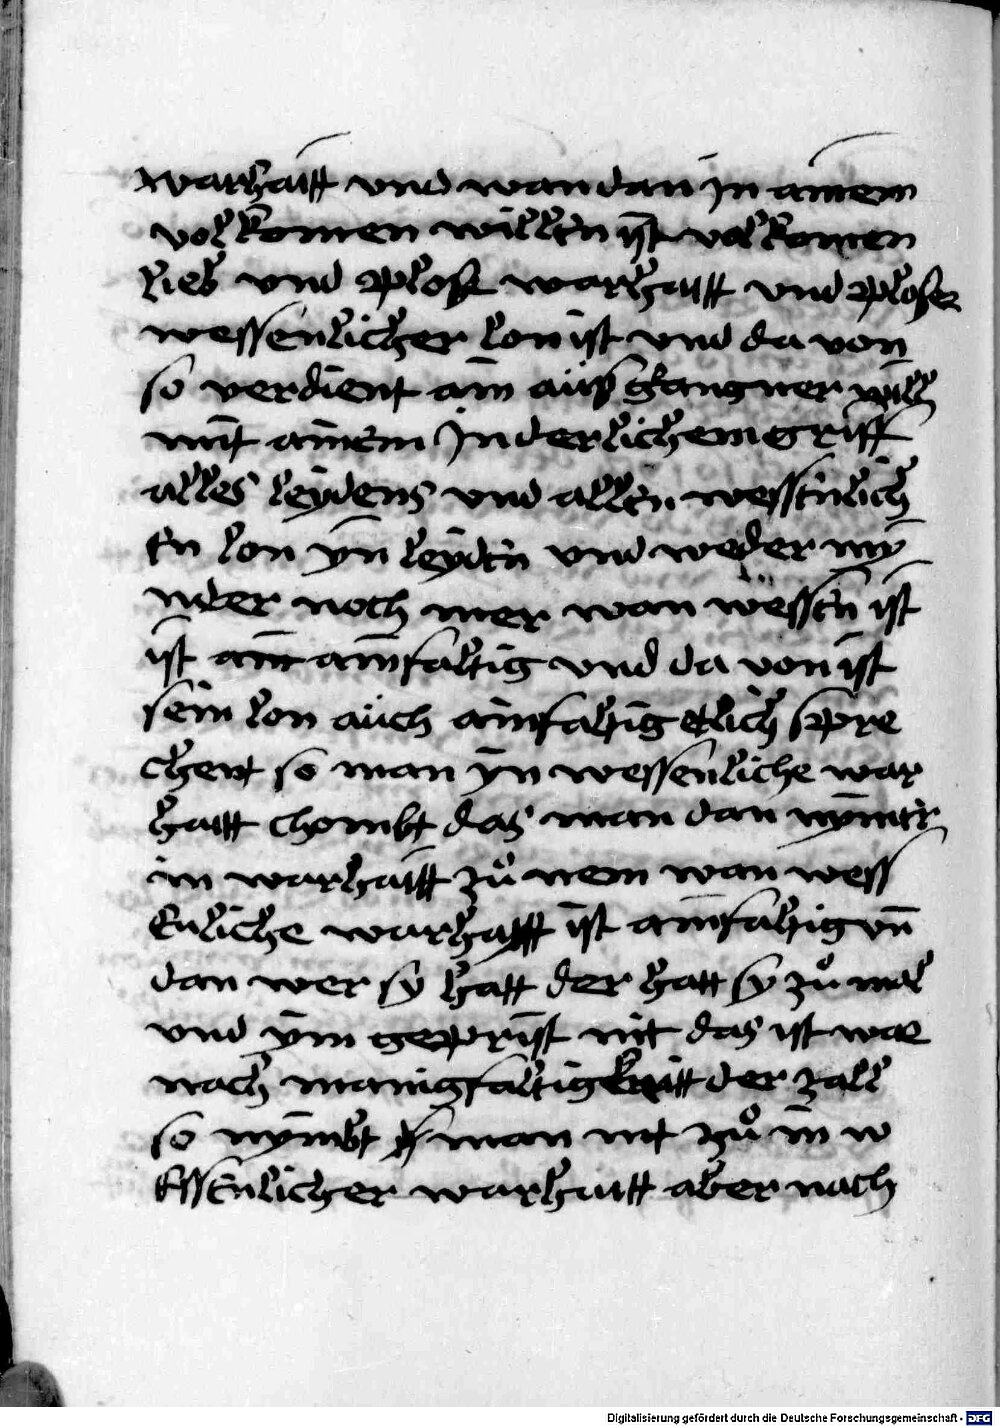 warhaitt vnd wan dan jn ainem
volkomen willen ist volkomen
lieb vnd plose warhaitt vnd ploser
wessenlicher lon ist vnd da von
so verdient ain auß gangner will
mit ainem Jnderlichem griff
alles leydens vnd allen wessenlich
en lon yn leyden vnd weder my
nder noch mer wan wessen ist
ist ain ainfaltig vnd da von ist
sein lon auch ainfaltig etlich spre
chent so man yn wessenliche war
haitt chombt das man dan nymer
in warhaitt zů nem wan wess
enliche warhaytt ist ainfaltig vn̄
dan wer sy hatt der hatt sy zů mal
vnd ym geprist nit das ist war
nach manigfaltigkeitt der zall
so nymbt man nit zů in w
essenlicher warhaitt aber nach
Digitalisierung gefördert durch die Deutsche Forschungsgemeinschaft - DFG